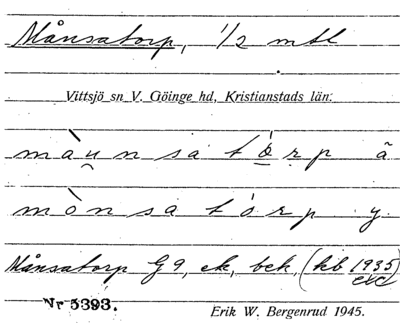 Månsatorp, 1/2 mtl
Vittsjö sn V. Göinge hd, Kristianstads län.
màu̯nsatǿ̲rp ã
mònsatórp y.
Månsatorp G9, ek, bek, (kb 1935 etc
Nr 5393.
Erik W. Bergenrud 1945.